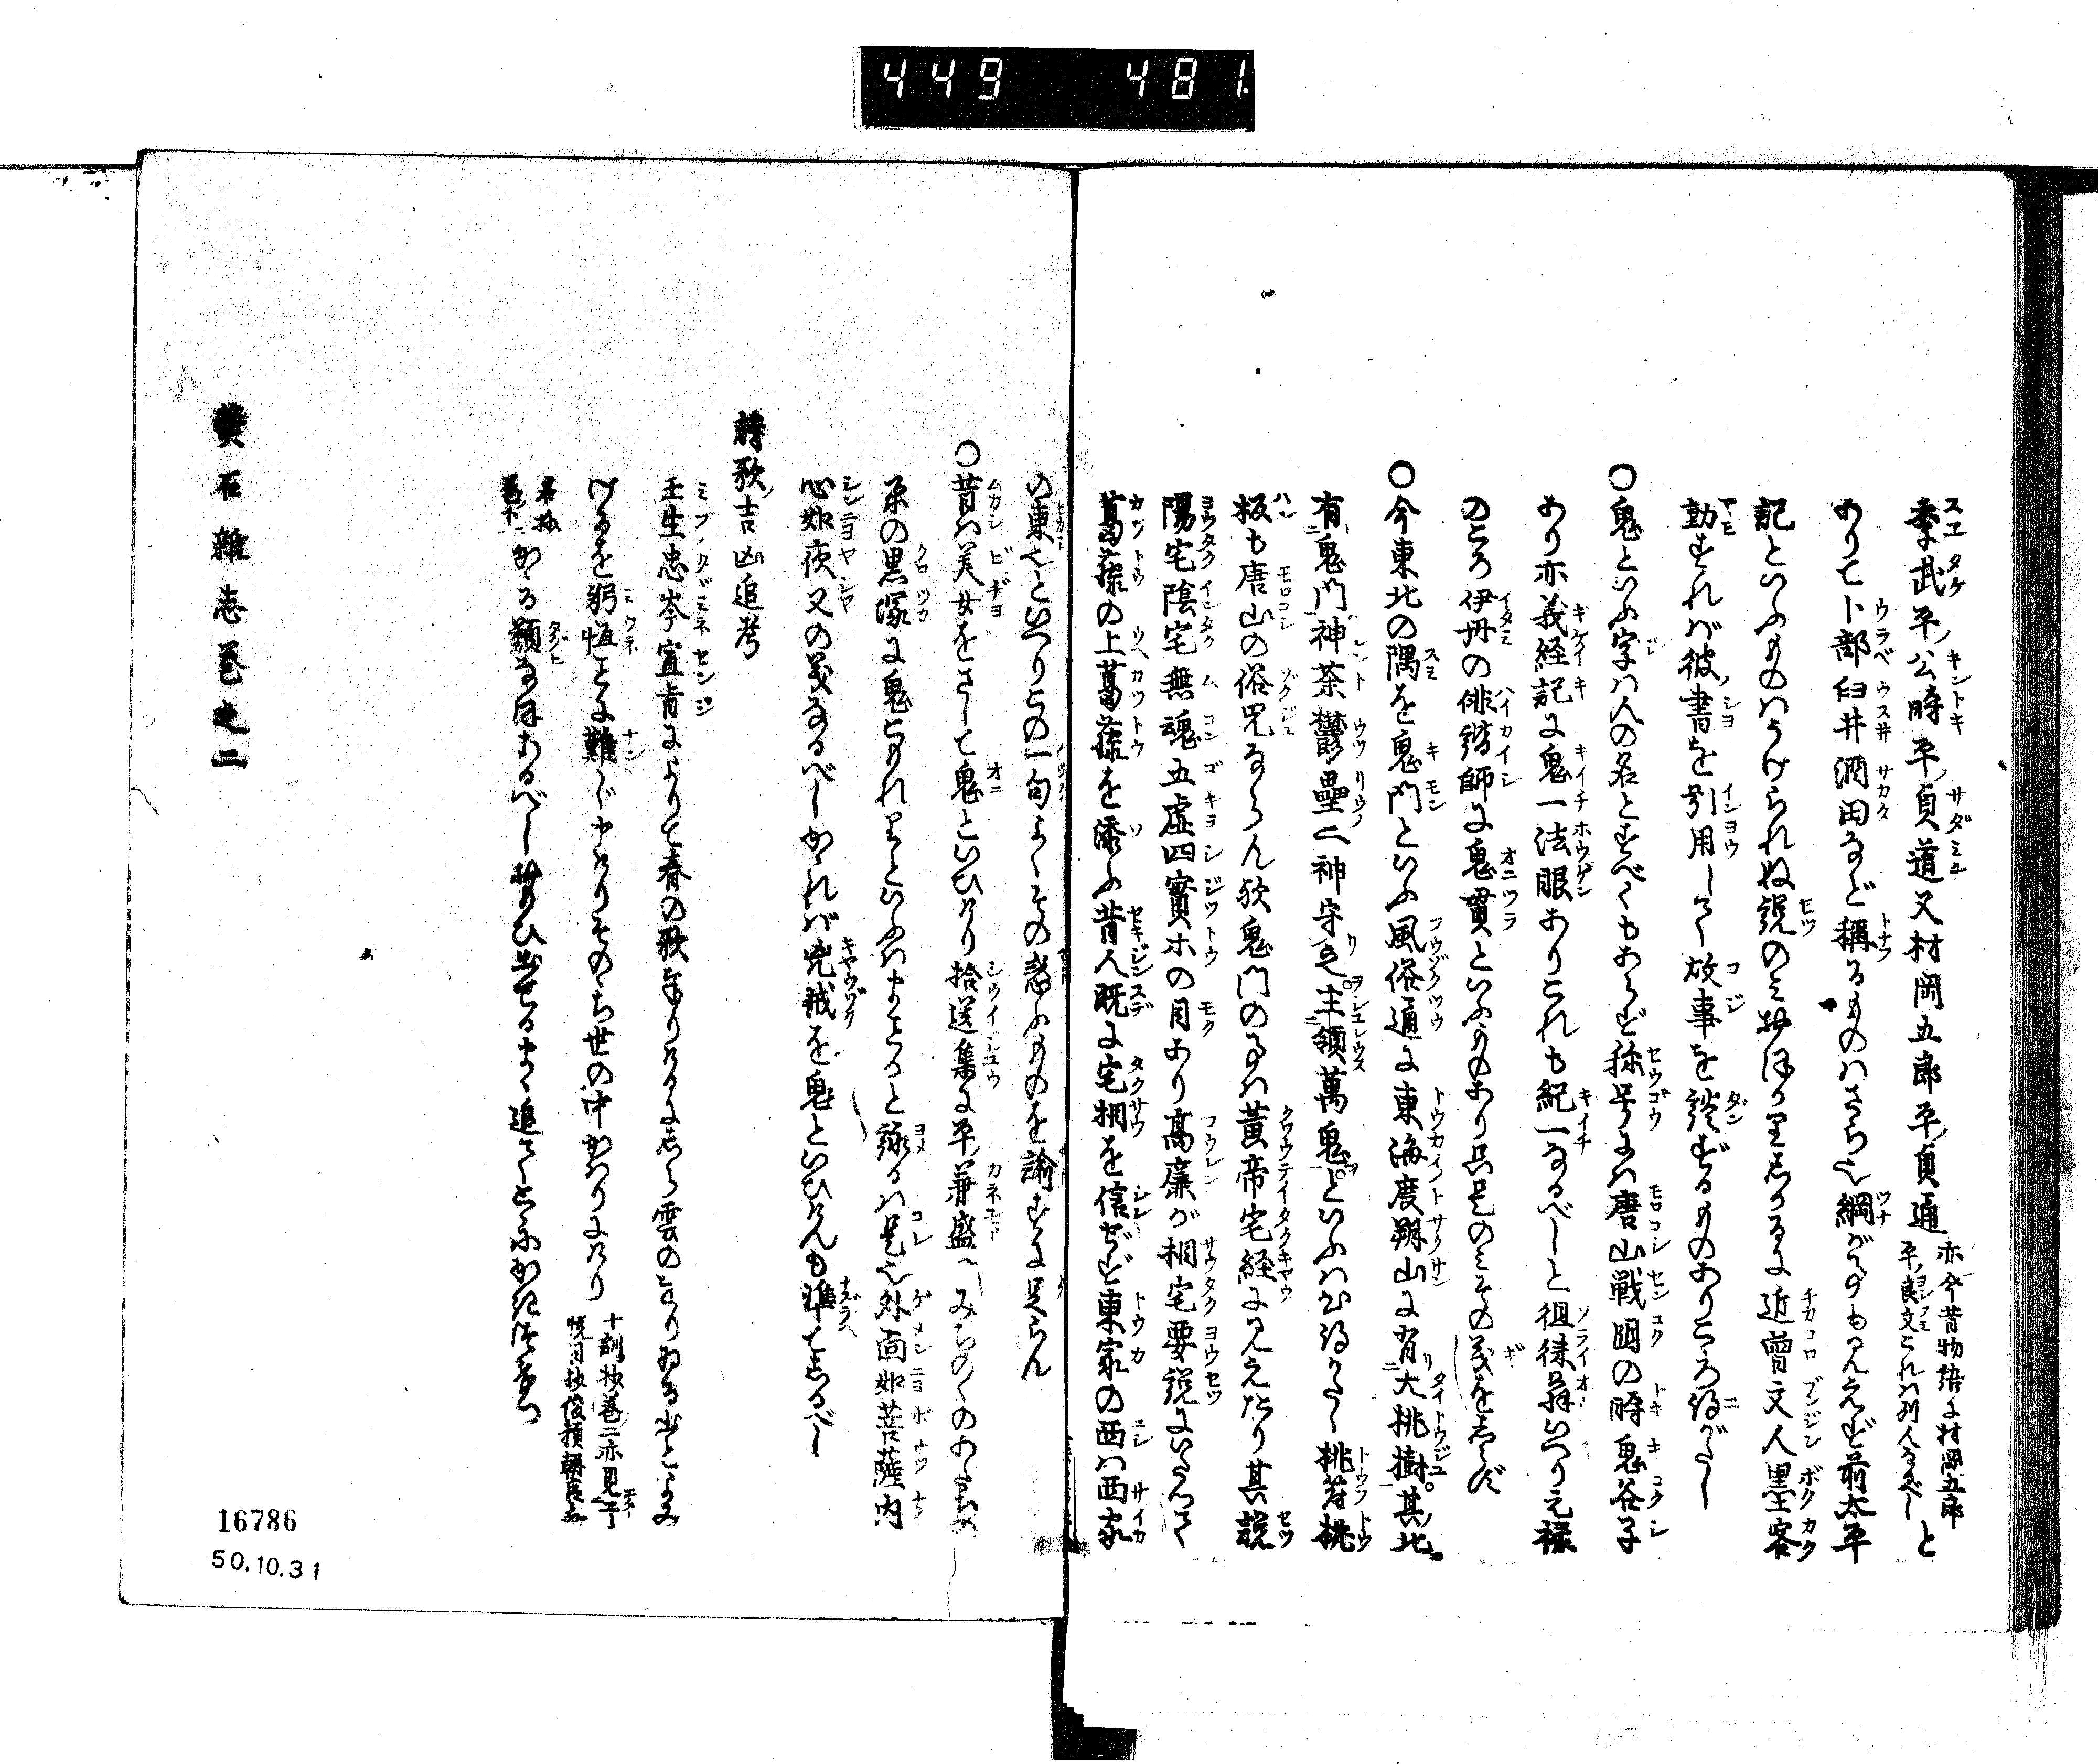 449 481.
季武平ノ公時平ノ貞道又村岡五郎平ノ貞通 亦今昔物語に村岡五郎平ノ良文これは別人なるべし と
ありて卜部臼井酒田など稱るものはさら也綱が事もみえず前太平
記といふものはうけられぬ説のみおほかりしかるに近曾文人墨客
動すれば彼書を引用して故事を談ずるものありこころ得がたし
○鬼といふ字は人の名とすべくもあらず称号には唐山戦国の時鬼谷子
あり亦義経記に鬼一法眼ありこれも紀一なるべしと徂徠翁いへり元禄
のころ伊丹の俳諧師に鬼貫といふものあり只是のみその義をしらず
○今東北の隅を鬼門といふ風俗通に東海度朔山に有大桃樹其北
有鬼門神荼鬱壘二神守之主領萬鬼といふは心得がたし桃符桃
板も唐山の俗咒ならん歟鬼門の事は黄帝宅経にみえたり其説
陽宅陰宅無魂五虚四實ホの目あり高廉が相宅要説にいたつて
葛藤の上葛藤を添ふ昔人既に宅相を信ぜず東家の西は西家
の東也といへりこの一句よくその惑ふものを諭すに足らん
○昔は美女をさして鬼といひけり拾遺集に平ノ兼盛 みちのくのあだちが
原の黒塚に鬼こもれりといふはまことかと詠るは是也外面如菩薩内
心如夜叉の義なるべしかかれば兇賊を鬼といひけんも準てしるべし
時歌ノ吉凶追考
壬生忠岑宣旨によりて春の歌奉りけるにしら雲のおりゐる山とよみ
けるを躬恒ことに難じ申けりそののち世の中かはりにけり 十訓抄巻二亦見于
袋草紙俊頼朝臣
名抄巻下 かかる類なほあるべしおもひ出るまま追てこゝにかきつけつ
燕石雑志巻之二
16786
50.10.31